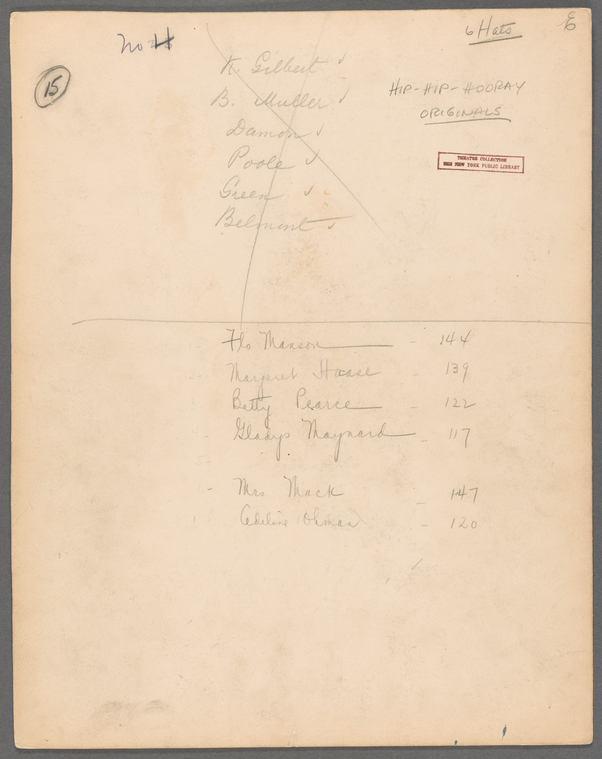 No 4
6 Hats
E
15
K. Gilbert ✓
B. Muller ✓
Damon ✓
Poole ✓
Green ✓
Belmont ✓
HIP-HIP-HOORAY
ORIGINALS
THEATRE COLLECTION
THE NEW YORK PUBLIC LIBRARY
Flo Manson - 144
Margaret Haase - 139
Betty Pearce - 122
Gladys Maynard - 117
- Mrs Mack - 147
Adeline Ohman - 120